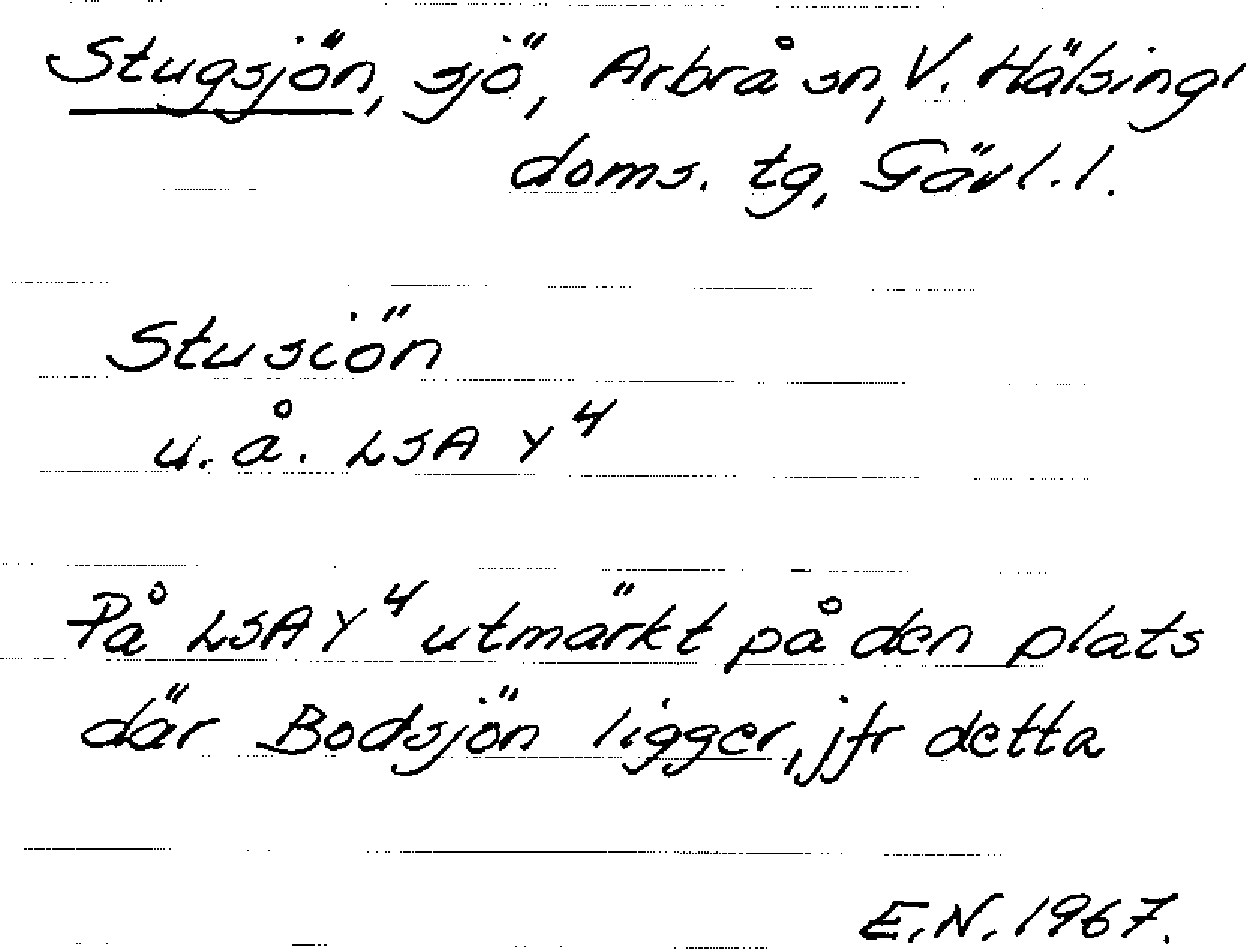 Stugsjön, sjö, Arbrå sn, V. Hälsingl
doms. tg, Gävl.l.
Stusiön
u.å. LSA Y4
På LSA Y4 utmärkt på den plats
där Bodsjön ligger, jfr detta
E.N. 1967.